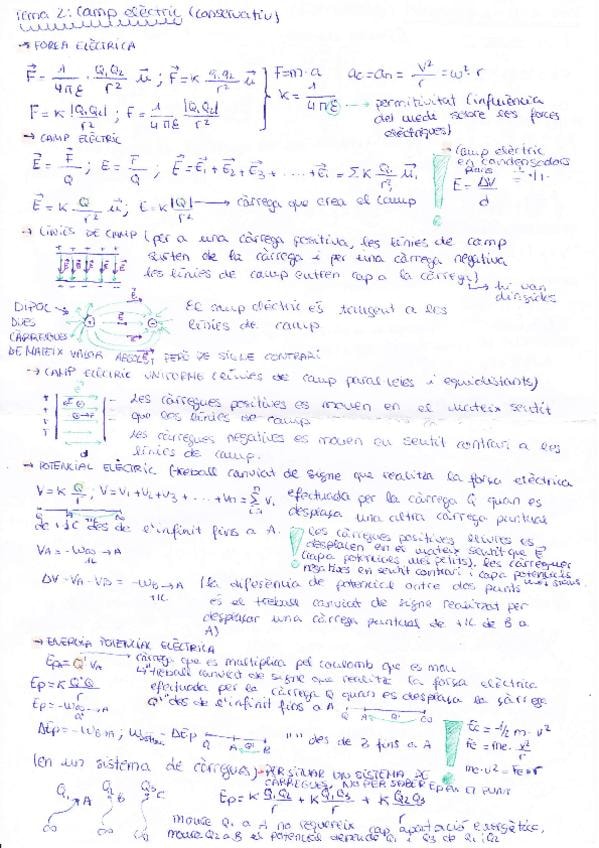 Tema 2: Camp elèctric (conservatiu)
→ FORÇA ELÈCTRICA
F = 1/4πε · Q1Q2/r² μ ; F = K Q1Q2/r² μ } F=m·a ac = an = v²/r = ω²·r
F = K |Q1Q2|/r² ; F = 1/4πε |Q1Q2|/r² K = 1/4πε → permitivitat (influència
del medi sobre les forces
elèctriques)
→ CAMP ELÈCTRIC
E = F/Q ; E = F/Q ; E = E1 + E2 + E3 + ... + Ei = Σ K Qi/ri² μi
E = K Q/r² μ ; E = K |Q|/r² → càrrega que crea el camp
→ Camp elèctric
en condensadors
plans
E = ΔV/d
→ LÍNIES DE CAMP (per a una càrrega positiva, les línies de camp
surten de la càrrega i per una càrrega negativa
les línies de camp entren cap a la càrrega)
→ hi van
dirigides
DIPOL
DUES
CÀRREGUES
DE MATEIX VALOR ABSOLUT PERÒ DE SIGNE CONTRARI
El camp elèctric és tangent a les
línies de camp
→ CAMP ELÈCTRIC UNIFORME (línies de camp paral·leles i equidistants)
- Les càrregues positives es mouen en el mateix sentit
que les línies de camp
- Les càrregues negatives es mouen en sentit contrari a les
línies de camp.
d
→ POTENCIAL ELÈCTRIC (treball canviat de signe que realitza la força elèctrica
V = K Q/r ; V = V1 + V2 + V3 + ... + Vn = Σ Vi efectuada per la càrrega Q quan es
desplaça una altra càrrega puntual
de +1C des de l'infinit fins a A.
Les càrregues positives lliures es
desplacen en el mateix sentit que E
(cap a potencials més petits), les càrregues
negatives en sentit contrari i cap a potencials
més grans.
VA = -W∞→A
ΔV = VA - VB = -WB→A +1C (la diferència de potencial entre dos punts
és el treball canviat de signe realitzat per
desplaçar una càrrega puntual de +1C de B a
A)
→ ENERGIA POTENCIAL ELÈCTRICA
EpA = Q' VA càrrega que es multiplica pel coulomb que es mou
treball canviat de signe que realitza la força elèctrica
Ep = K Q·Q'/r efectuada per la càrrega Q quan es desplaça la càrrega
Ep = -W∞→A Q' des de l'infinit fins a A
ΔEp = -WB→A ; W = -ΔEp "" des de B fins a A
Ec = 1/2 m·v²
Fe = m·v²/r
m·v² = Fe·r
(en un sistema de càrregues) → PER SITUAR UN SISTEMA DE
CÀRREGUES, NO PER SABER Ep EN EL PUNT
Q1 A Q2 B Q3 C
Ep = K Q1Q2/r + K Q1Q3/r + K Q2Q3/r
moure Q1 a A no requereix cap aportació energètica,
moure Q2 a B el potencial depèn de Q1 i Q3 de Q1 i Q2